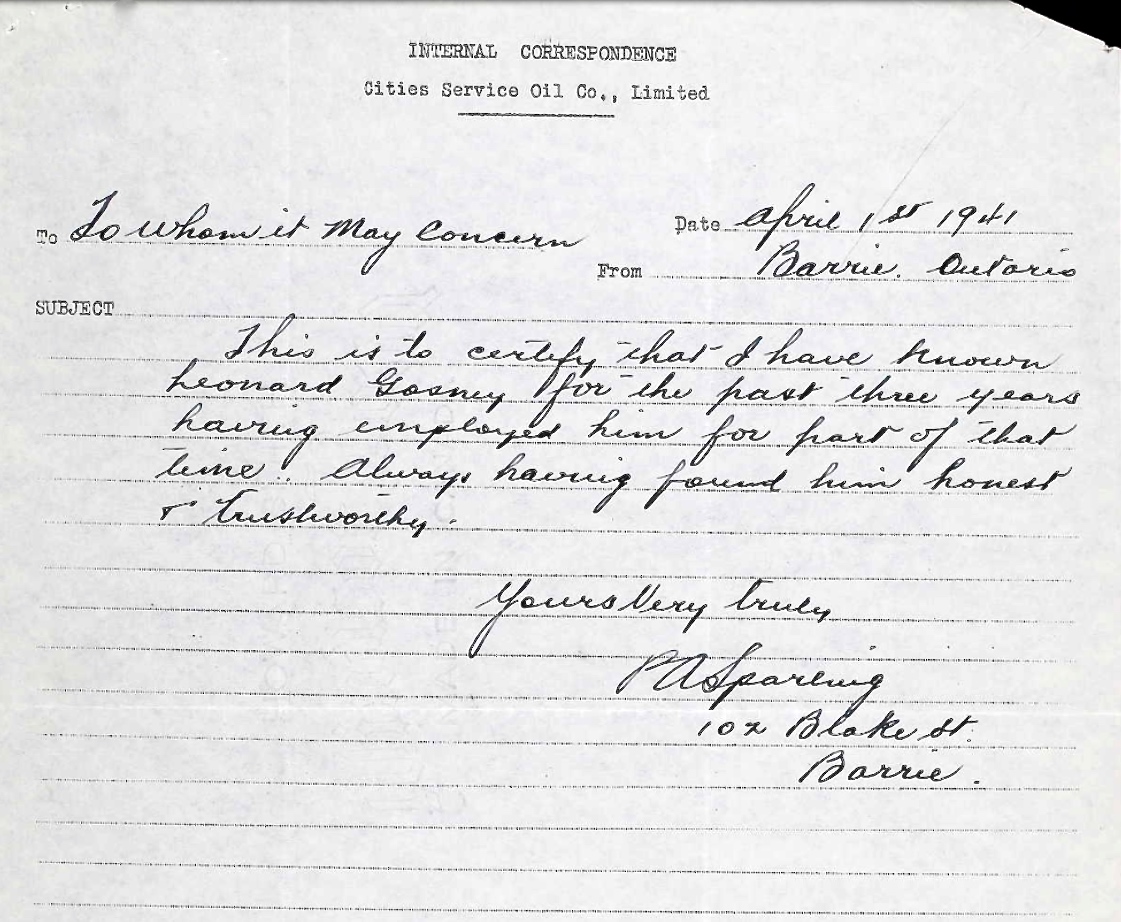 INTERNAL CORRESPONDENCE
Cities Service Oil Co., Limited
To To whom it May Concern
Date April 1st 1941
From Barrie. Ontario
SUBJECT
This is to certify that I have known
Leonard Gosney for the past three years
having employed him for part of that
time. Always having found him honest
& trustworthy.
Yours Very truly
PA Sparling
102 Blake St.
Barrie.